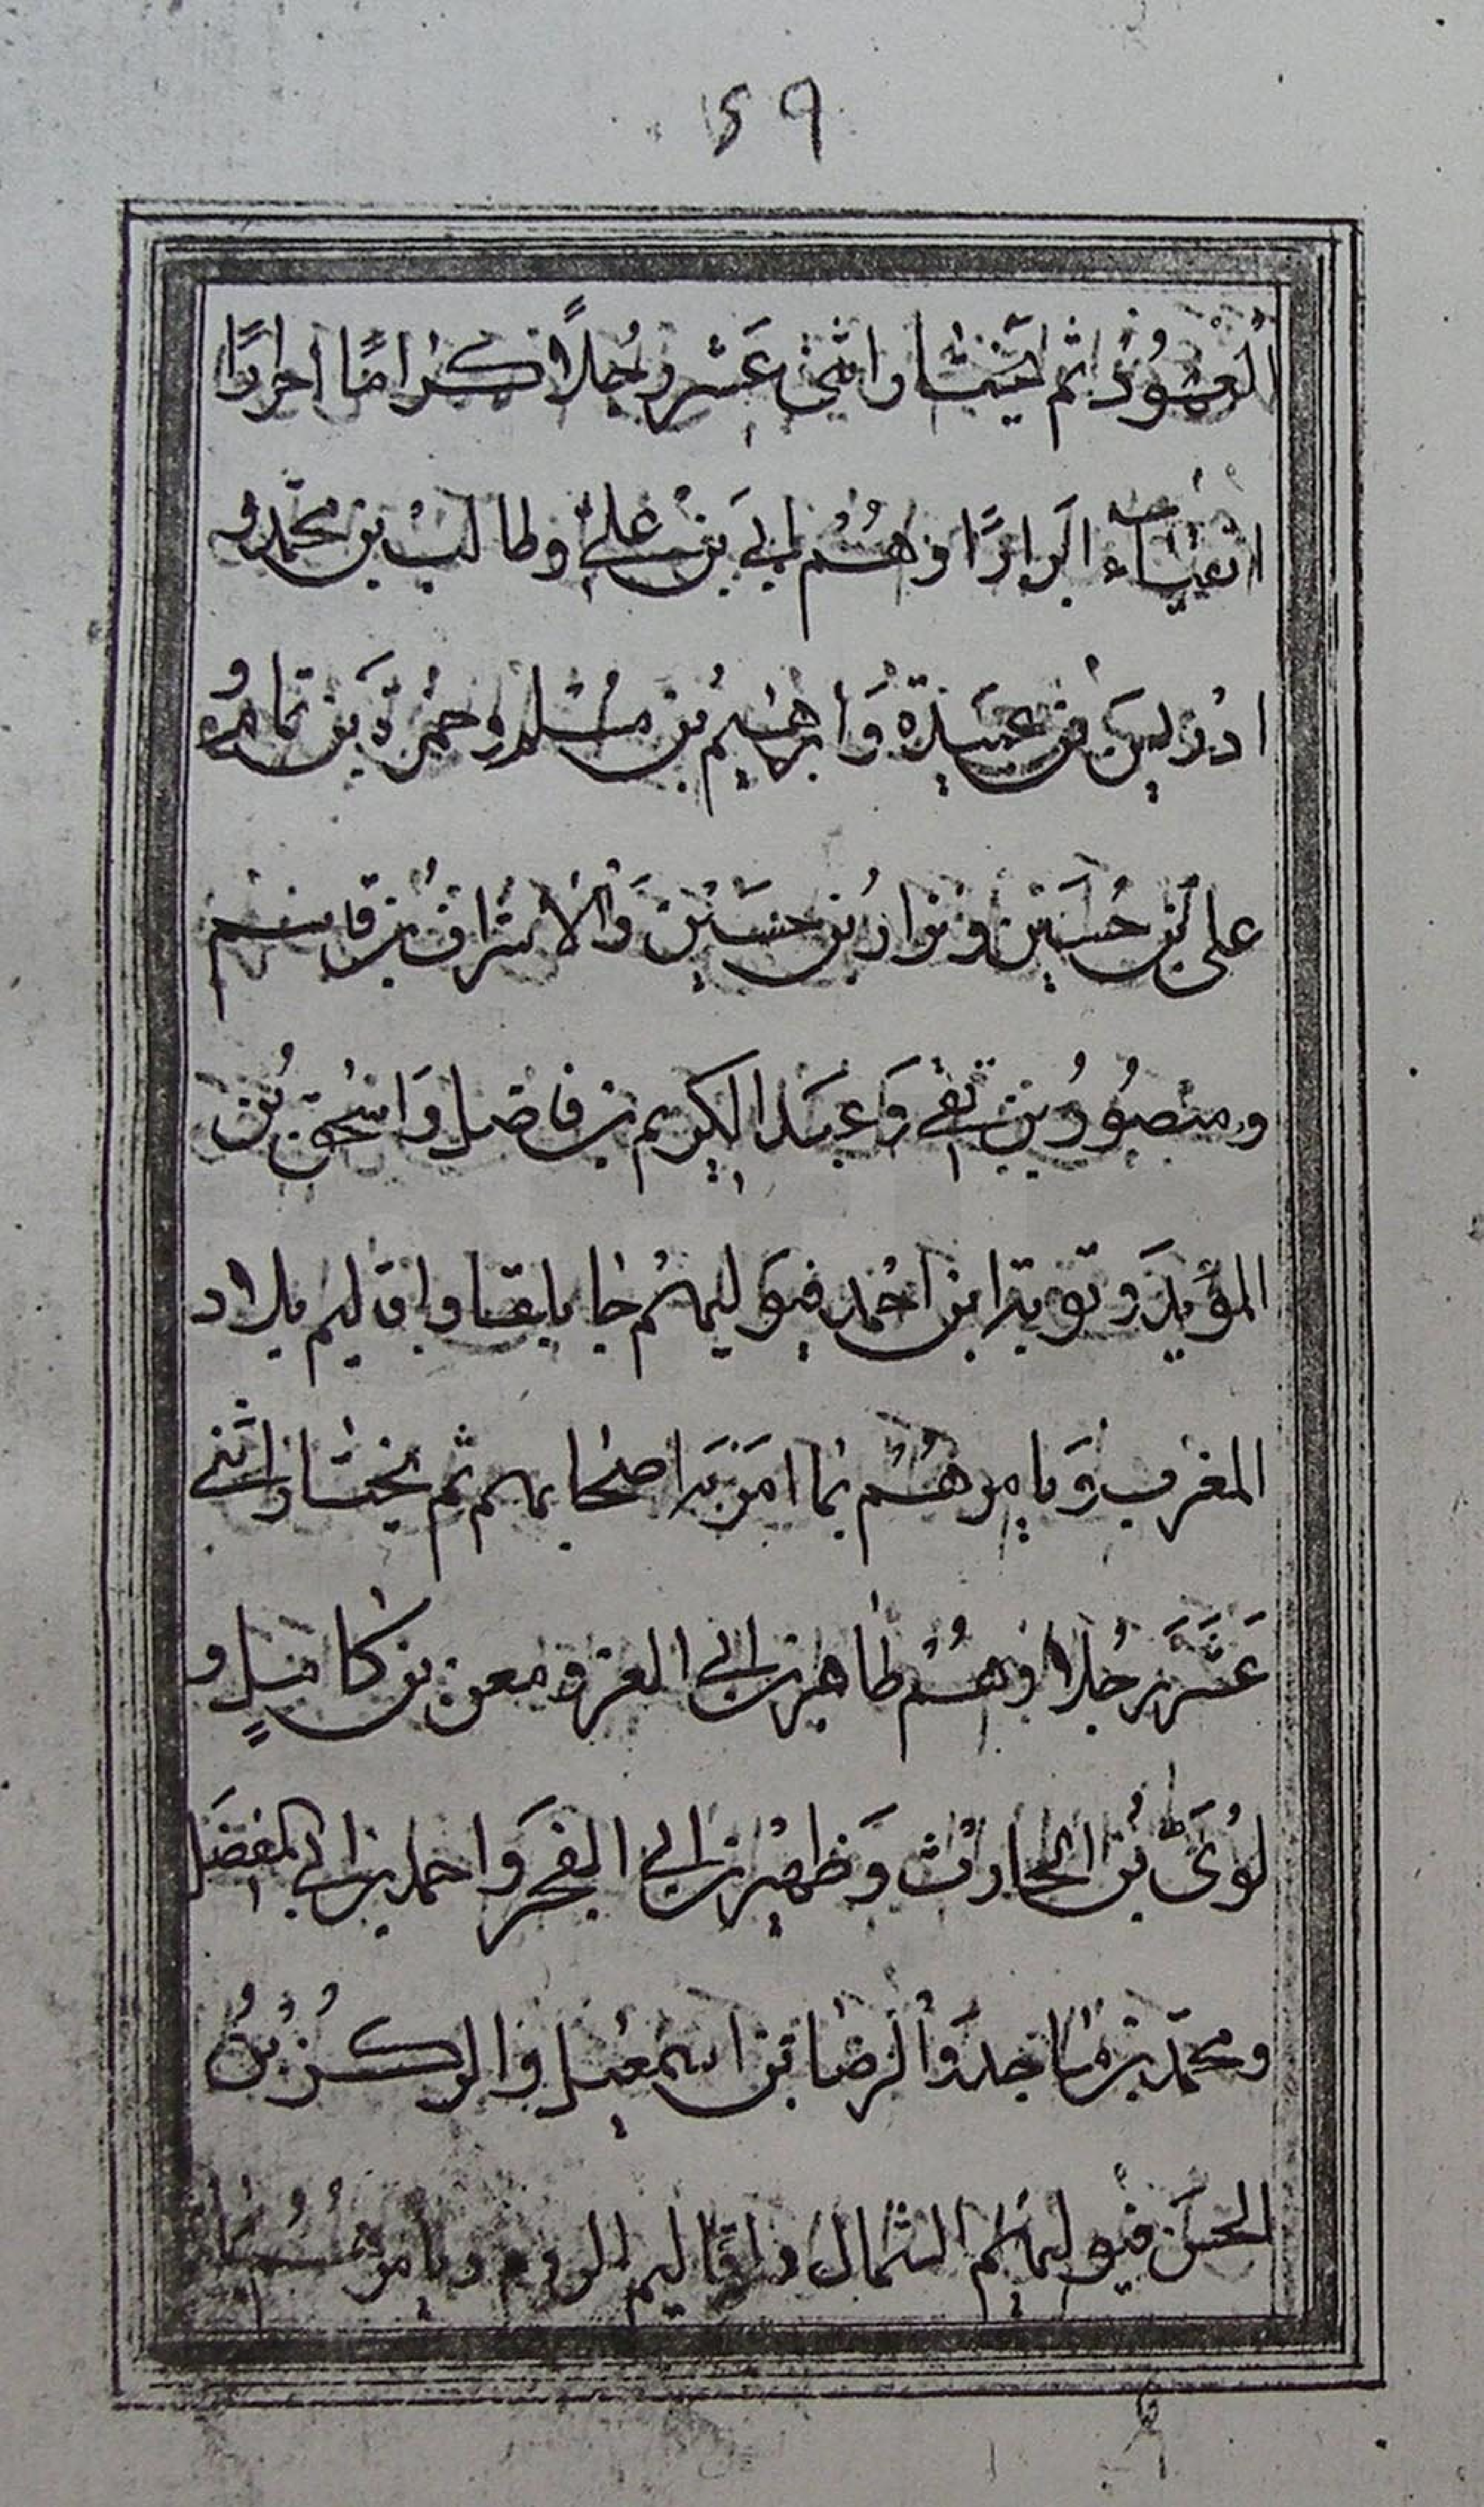 ٢٩
ثم يختار اثني عشر رجلًا كرامًا احرارًا
اتقياء ابرارًا وهُم ابي بن علي وطالب بن محمّد و
ادريس بن عبيدة وَابرهيم بن مُسلم وحمزة بن تمام و
علي بن حُسَين ونزار بن حسَين وَالاشراف بن قاسم
ومنصُور بن تقي وَعبد الكريم بن فاضل وَاسحٰق بُن
المؤيد وتوبة ابن احمد فيوليهُم جابلقا واقاليم بلاد
المغرب وَيامرهُم بما امَر به اصحابهم ثم يختار اثني
عَشَر رجُلا وهُم طاهر بن ابي العز ومعن بن كامل و
لؤىّ بُن الحارث وَظهير بن ابي الفجر وَاحمد بن ابي المفضل
ومحمّد بن ماجد وَالرضا بن اسمعيل وا بنُ
الحسَن فيوليهُم الشمال واقاليم الروم ويامرهُم